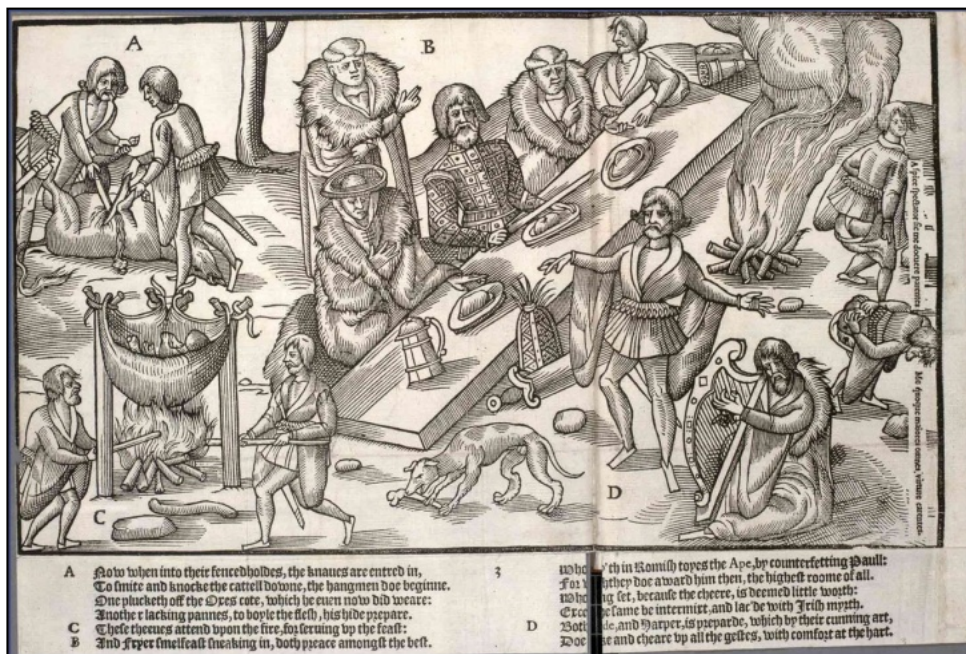 A
B
C
D
Aspice spectator sic me docuere parentes
Me quoque maiores omnes, virtute carentes.
A Now when into their fencedholdes, the knaues are entred in,
To smite and knocke the cattell downe, the hangmen doe beginne.
One plucketh off the Oxes cote, which he euen now did weare:
Another lacking pannes, to boyle the flesh, his hide prepare.
C These theeues attend vpon the fire, for seruing vp the feast:
B And Fryer smelfeast sneaking in, doth preace amongst the best.
3
in Romish toyes the Ape, by counterfetting Paull:
For they doe award him then, the highest roome of all.
set, because the cheere, is deemed little worth:
same be intermixt, and lac'de with Irish myrth.
D and Harper, is preparde, which by their cunning art,
Doe and cheare vp all the gestes, with comfort at the hart.